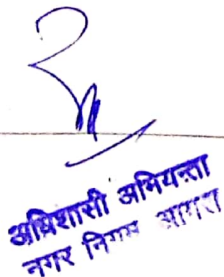 अधिशासी अभियन्ता
नगर निगम आगरा